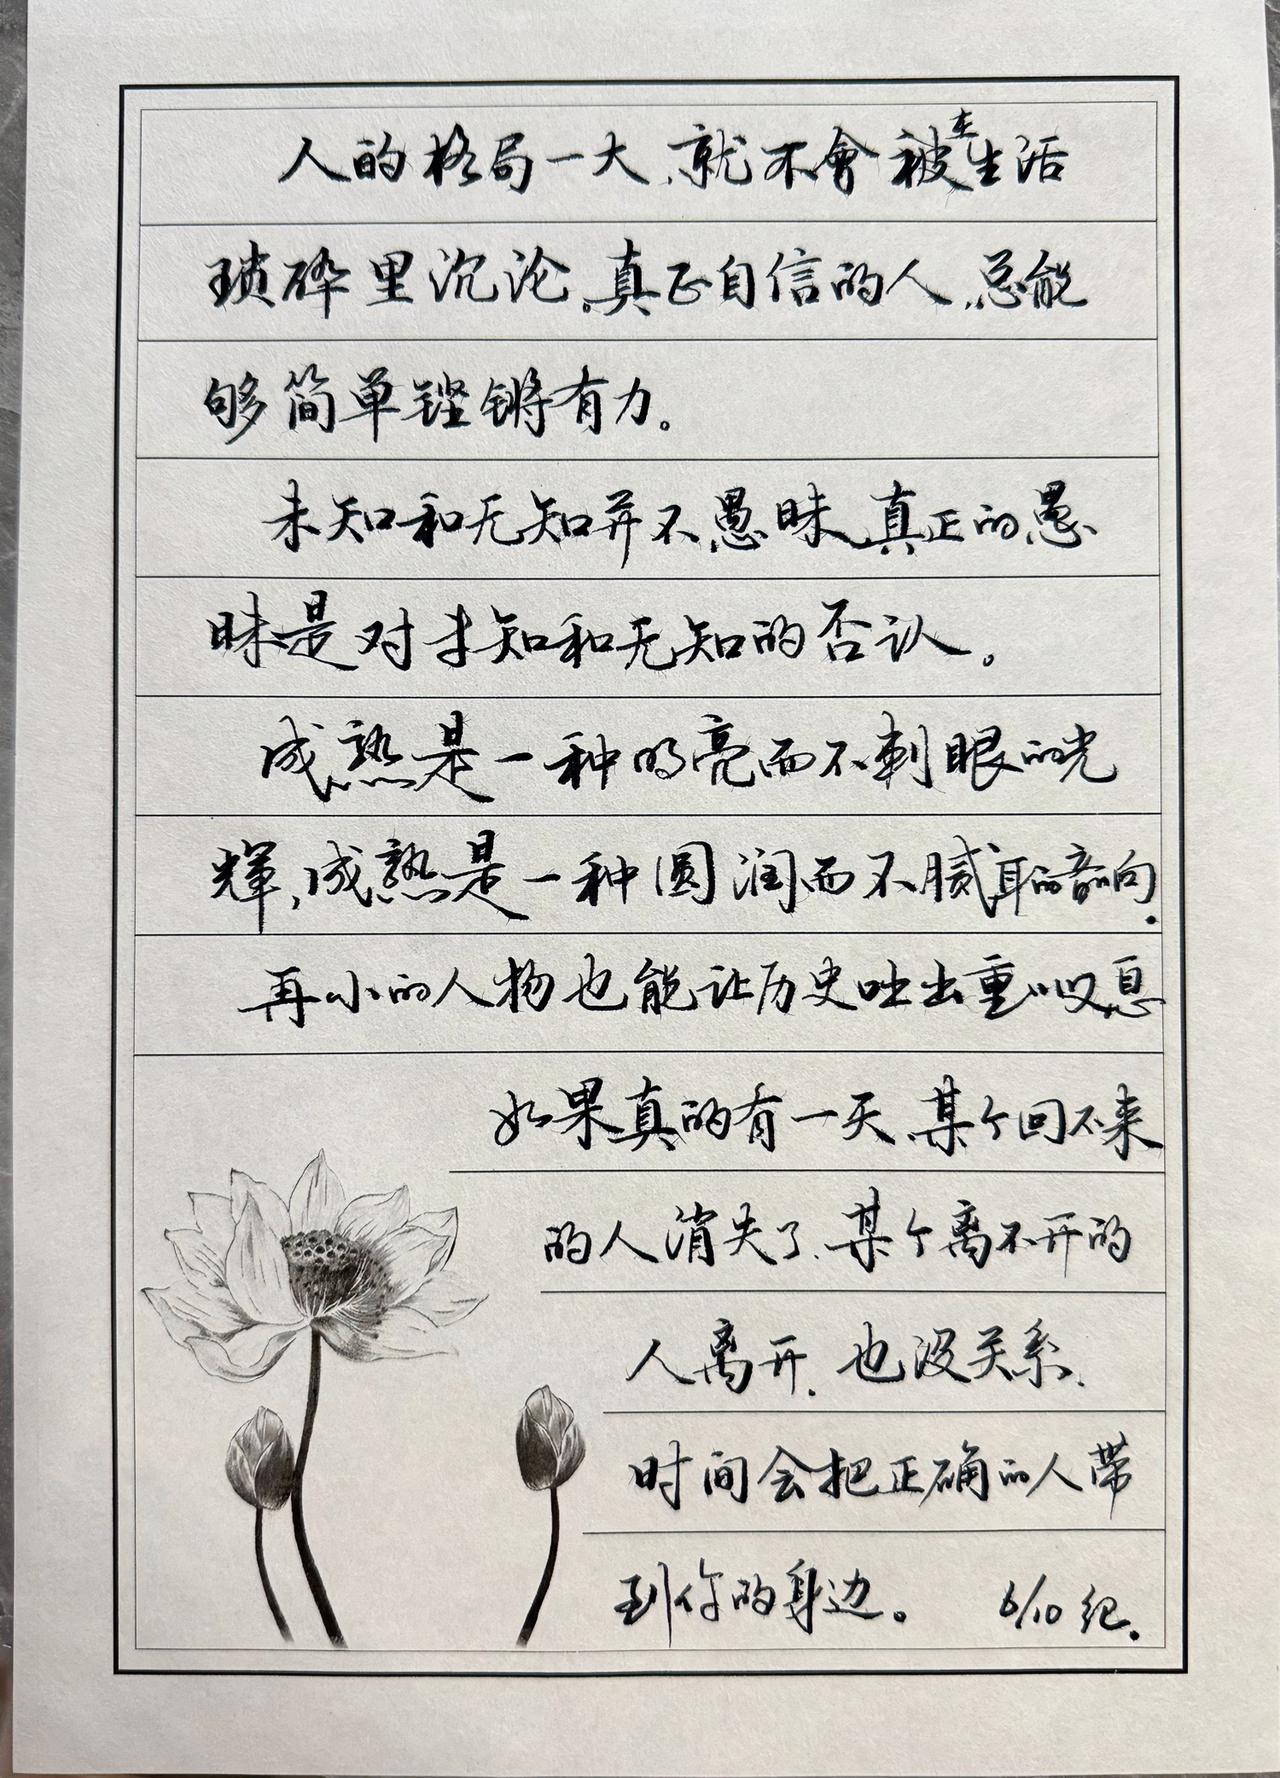 人的格局一大、就不會被在生活
琐碎里沉沦。真正自信的人，总能
够简单铿锵有力。
未知和无知并不愚昧，真正的愚
昧是对未知和无知的否认。
成熟是一种明亮而不刺眼的光
辉，成熟是一种圆润而不腻耳的音响.
再小的人物也能让历史吐出重叹息
如果真的有一天、某个回不来
的人消失了、某个离不开的
人离开、也没关系、
时间会把正确的人带
到你的身边。 6/10 纪.